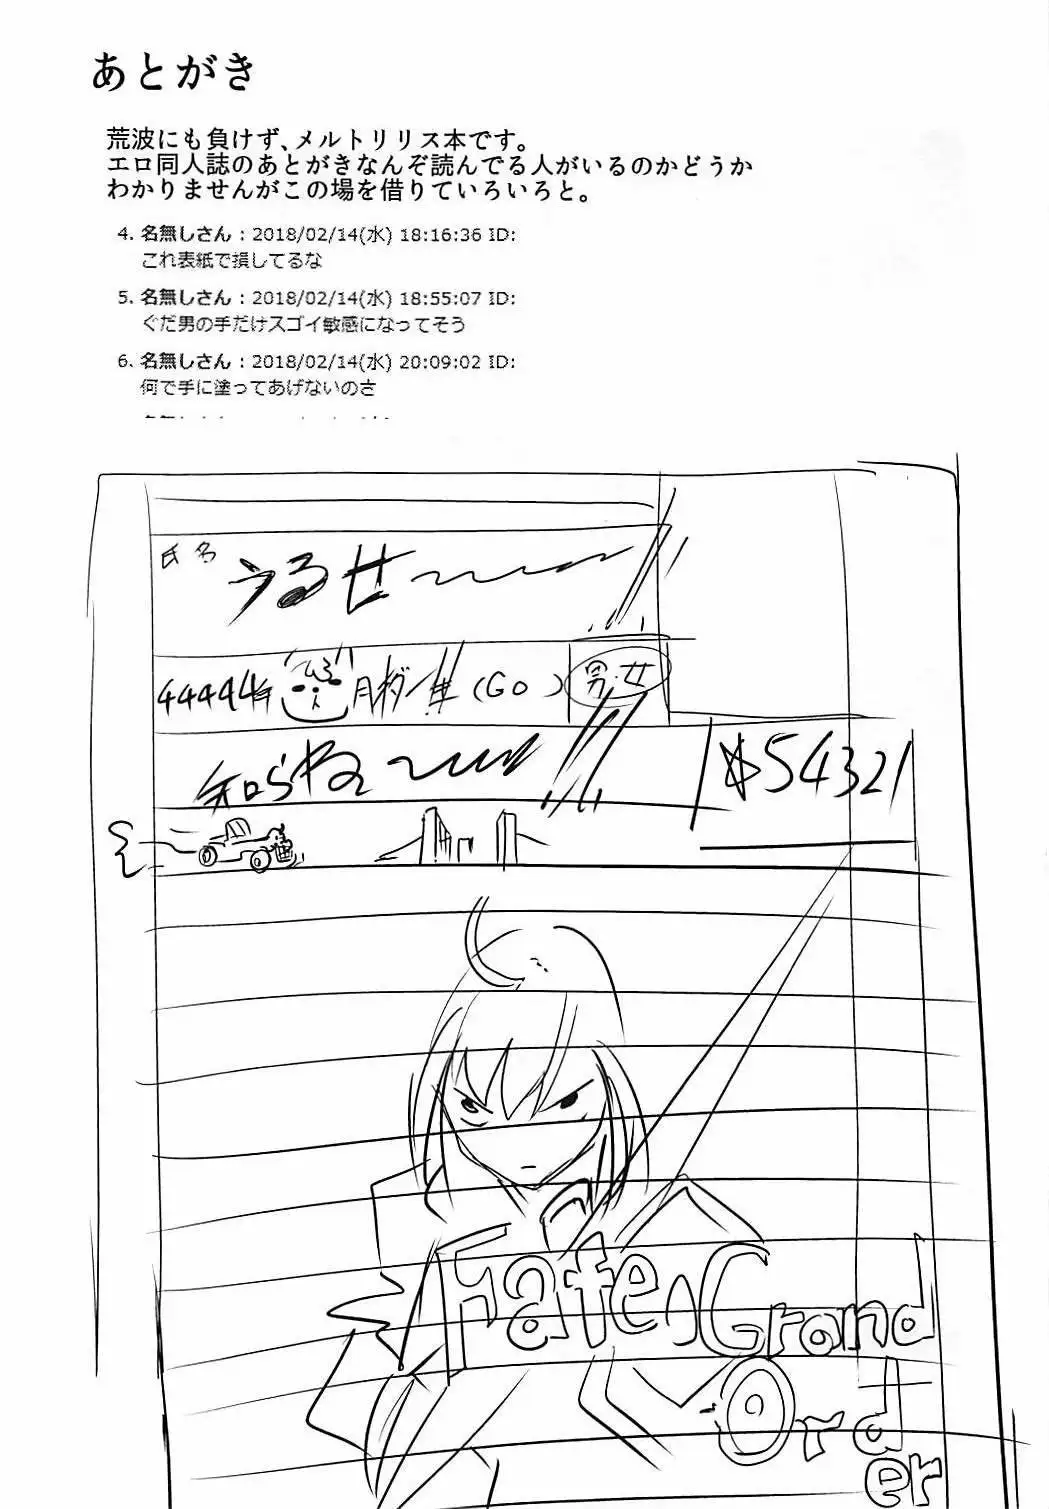 あとがき
荒波にも負けず、メルトリリス本です。
エロ同人誌のあとがきなんぞ読んでる人がいるのかどうか
わかりませんがこの場を借りていろいろと。
4. 名無しさん：2018/02/14(水) 18:16:36 ID:
これ表紙で損してるな
5. 名無しさん：2018/02/14(水) 18:55:07 ID:
ぐだ男の手だけスゴイ敏感になってそう
6. 名無しさん：2018/02/14(水) 20:09:02 ID:
何で手に塗ってあげないのさ
氏名
うるせ〜〜〜!!
44444年 月 (GO) 男・女
知らね〜〜〜!!
54321
Fate/Grand
Order